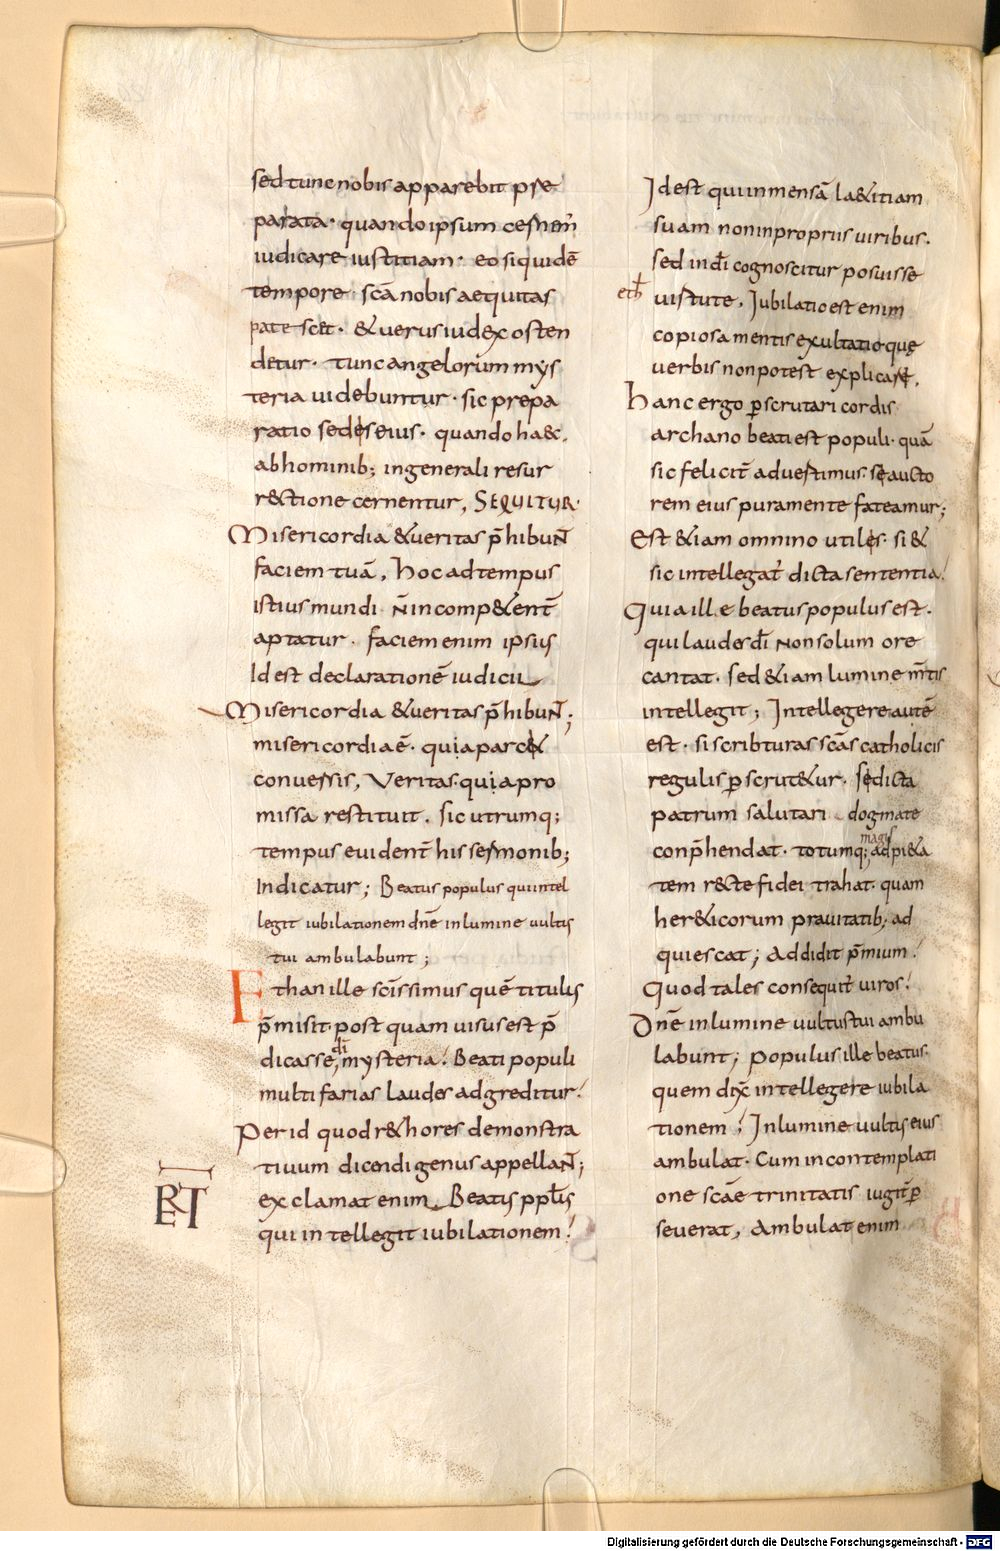 sed tunc nobis apparebit pre
parata · quando ipsum cernem̄
iudicare iustitiam · eo siquidē
tempore scā nobis aequitas
patescet · & uerus iudex osten
detur · tunc angelorum mys
teria uidebuntur · sic prepa
ratio sedis eius · quando haec,
ab hominib; in generali resur
rectione cernentur, SEQUITUR·
Misericordia & ueritas p̄hibuNT
faciem tuā, hoc ad tempus
istius mundi n̄ incomp&ent̄
aptatur · faciem enim ipsius
Id est declarationē iudicii
Misericordia & ueritas p̄hibuNT;
misericordia ē · quia parc&
conuersis, Veritas· quia pro
missa restituit · sic utrumq;
tempus euident his sermonib;
Indicatur; Beatus populus qui intel
legit iubilationem dn̄e in lumine uultus
tui ambulabunt;
Ethan ille sc̄issimus quē titulus
p̄misit· post quam uisus est p̄
dicasse dī mysteria! Beati populi
multifarias laudes adgreditur!
Per id quod r&hores demonstra
tiuum dicendi genus appellaNT;
RET
exclamat enim Beatus ppl̄s
qui intellegit iubilationem!
Id est qui inmensā la&itiam
suam non in propriis uiribus·
sed in dī cognoscitur posuisse
uirtute, Iubilatio est enim
copiosa mentis exultatio quę
uerbis non potest explicari,
hanc ergo p̱scrutari cordis
archano beati est populi · quā
sic felicit̄ aduertimus· se aucto
rem eius pura mente fateamur;
Est &iam omnino utiles · si &
sic intellegat̄ dicta sententia!
Quia ille beatus populus est·
qui laudes dī Non solum ore
cantat · sed &iam lumine m̄tis
intellegit; Intellegere autē
est · si scribturas scās catholicis
regulis p̱scrut&ur · sed icta
patrum salutari dogmate
conp̄hendat · totumq; magis ad pi&a
tem recte fidei trahat · quam
her&icorum prauitatib; ad
quiescat; Addidit p̄mium!
Quod tales consequit̄ uiros!
Dn̄e in lumine uultus tui ambu
labunt; populus ille beatus·
quem dix̄ intellegere iubila
tionem! In lumine uultus eius
ambulat · Cum in contemplati
one scāe trinitatis iugit̄ p̱
seuerat, Ambulat enim
Digitalisierung gefördert durch die Deutsche Forschungsgemeinschaft - DFG